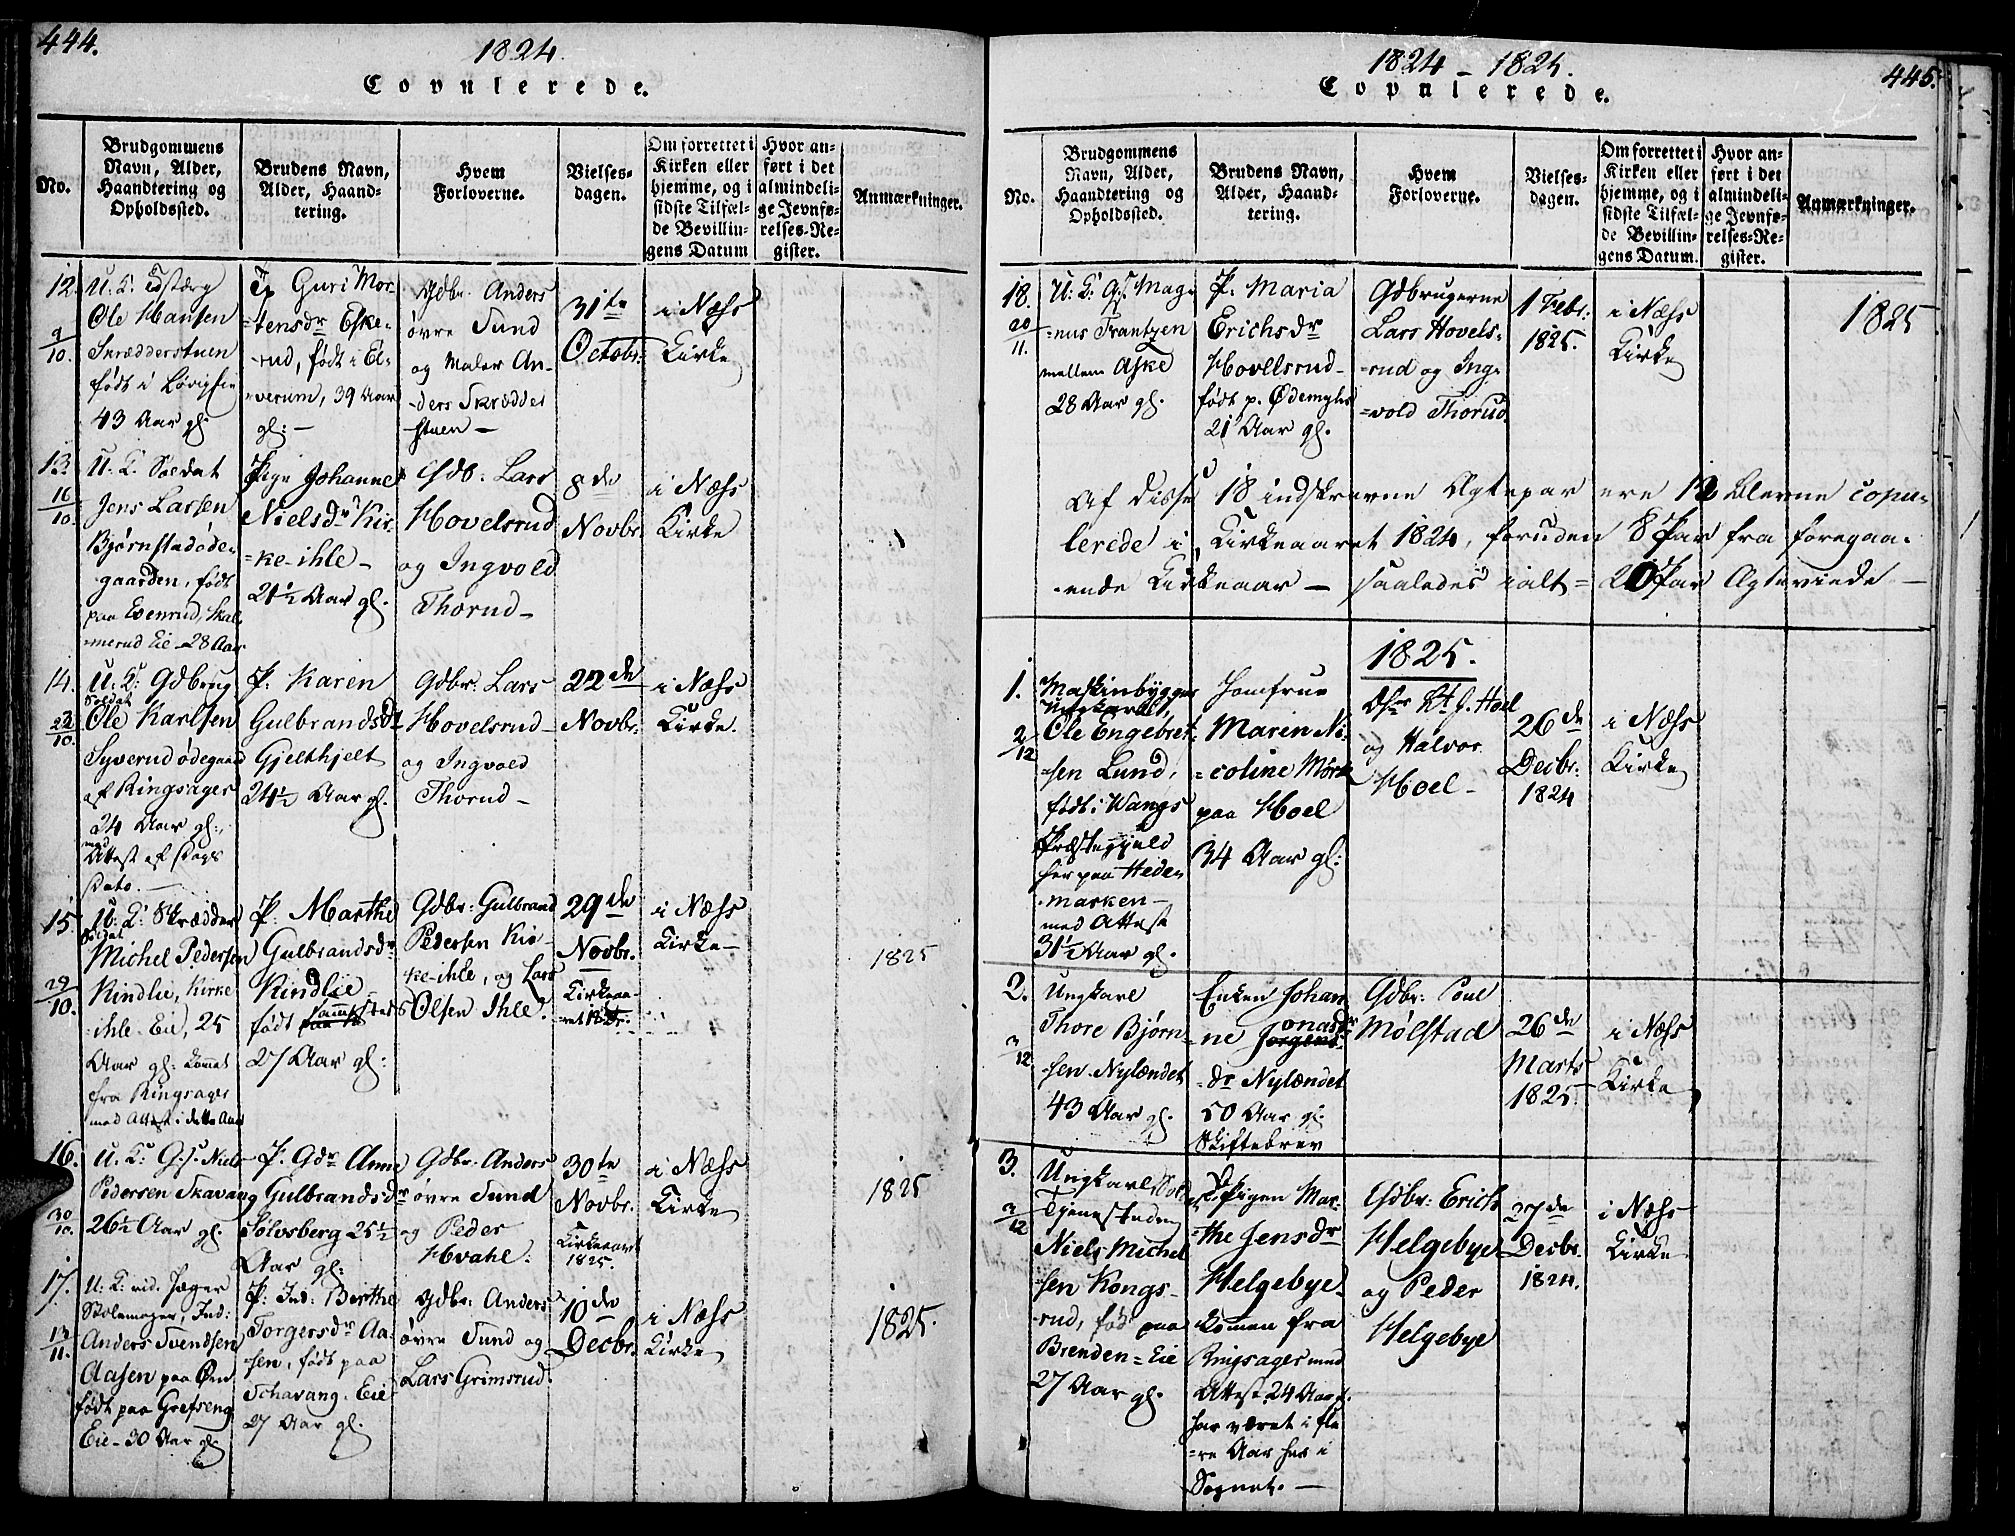 444.
1824.
Copulerede.
No.
Brudgommens
Navn, Alder,
Haandtering og
Opholdssted.
Brudens Navn,
Alder, Haand-
tering.
Hvem
Forloverne.
Vielses-
dagen.
Om forrettet i
Kirken eller
hjemme, og i
sidste Tilfæl-
de Bevillin-
gens Datum
Hvor an-
ført i det
almindeli-
ge Jevnfø-
relses-Re-
gister.
Anmærkninger.
12.
9/10.
U: K:
Ole Hansen
Skrædderstuen
født i
43 Aar gl.
P. Guri Mor-
=tensdr Eske-
rud, født i El-
verum, 39 Aar
gl: -
Gdbr. Anders
øvre Sund
og Maler An-
-ders Skrædder
stuen -
31te
Octobr:
i Næss
Kirke
13.
16/10.
U. K. Soldat
Jens Larsen
Bjørnstadøde-
gaarden, født
paa Evenrud, Skal-
merud Eie - 28 Aar
Pige Johanne
Nielsdr Kir-
=ke-ihle -
21½ Aar gl.
Gdb: Lars
Hovelsrud
og Ingvold
Thorud -
8de
Novbr.
i Næss
Kirke
14.
23/10.
U: K: Gdbrug
Soldat
Ole Karlsen
Syverud ødegaard
af Ringsager
24 Aar gl:,
med
Attest af Dags
Dato. -
P. Karen
Gulbrandsdr
Gjelthjelt
24½ Aar gl.
Gdbr: Lars
Hovelsrud -
og Ingvold
Thorud -
22de
Novbr.
i Næss
Kirke.
15.
29/10.
U: K: Skrædder
Soldat
Michel Pedersen
Kindlie, Kirke
-ihle-Eie, 25
Aar gl: kommet
fra Ringsager
med Attest i dette Aar
P. Marthe
Gulbrandsdr
Kindlie -
født sammesteds
27 Aar gl:
Gdbr: Gulbrand
Pedersen Kir-
ke-ihle, og Lars
Olsen Ihle.
29de
Novbr.
Kirkeaa-
-ret 1825.
i Næss
Kirke -
1825
16.
30/10.
U. K: G:s: Niels
Pedersen Skavang
26½ Aar gl.
P. Gdr Anne
Gulbrandsdr
Sølvsberg 25½
Aar gl:
Gdbr: Anders
øvre Sund
og Peder
Hvahl:
30te
Novbr.
Kirkeaaret
1825.
i Næss
Kirke
1825
17.
13/11.
U: K: rid. Jæger
Stolemager, Ind:
Anders Svendsen
Aasen paa Øen
født paa Grefseng
Eie - 30 Aar gl
P. Ind: Berthe
Torgersdr Aa-
sen, født paa
Schavang-Eie
27 Aar gl.
Gdbr: Anders
øvre Sund og
Lars Grimsrud.
10de
Decbr.
i Næss
Kirke
1825.
1824 - 1825.
445.
Copulerede.
No.
Brudgommens
Navn, Alder,
Haandtering og
Opholdssted.
Brudens Navn,
Alder, Haand-
tering.
Hvem
Forloverne.
Vielses-
dagen.
Om forrettet i
Kirken eller
hjemme, og i
sidste Tilfæl-
de Bevillin-
gens Datum.
Hvor an-
ført i det
almindeli-
ge Jevnfø-
relses-Re-
gister.
Anmærkninger.
18.
20/11.
U: K: G:s: Mag-
=nus Frantzen
mellem Aske
28 Aar gl.
P. Maria
Erichsdr
Hovelsrud -
født p. Ødemyhr
21 Aar gl.
Gdbrugerne
Lars Hovels-
=rud og Ing-
=vold Thorud.
1 Febr:
1825.
i Næss
Kirke
1825
Af disse 18 indskrevne Ægtepar ere 12 blevne copu-
lerede i Kirkeaaret 1824, foruden 8 Par fra foregaa-
-ende Kirkeaar - saaledes ialt = 20 Par Ægteviede -
1825.
1.
2/12
Maskinbygger
Ungkarl
Ole Engebret-
=sen Lund,
født i Wangs
Præstegjeld
her paa Heden
-marken -
med Attest
31½ Aar gl.
Jomfrue
Maren Ni-
=coline Mørk
paa Hoel
34 Aar gl:
Hoel
og Halvor
Hoel -
26de
Decbr:
1824
i Næss
Kirke
2.
3/12.
Ungkarl
Thore Bjørn-
-sen Nylændet
43 Aar gl.
Enken Johan
ne Jonas
Jorgens
-dr Nylændet
50 Aar gl.
Skiftebrev
Gdbr: Poul
Mølstad
26de
Marts
1825.
i Næss
Kirke
3.
3/12
Ungkarl, Sold.
Tjenestedr
Niels Michel
-sen Kongs-
rud, født paa
Brenden=Eie
27 Aar gl.
Pigen Mar-
=the Jensdr
Helgebye -
kommen fra
Ringsager med
Attest, 24 Aar gl.
har været i fle
=re Aar her i
Sognet. -
Gdbr: Erich
Helgebye
og Peder
Helgebye
27de
Decbr.
1824.
i Næss
Kirke -